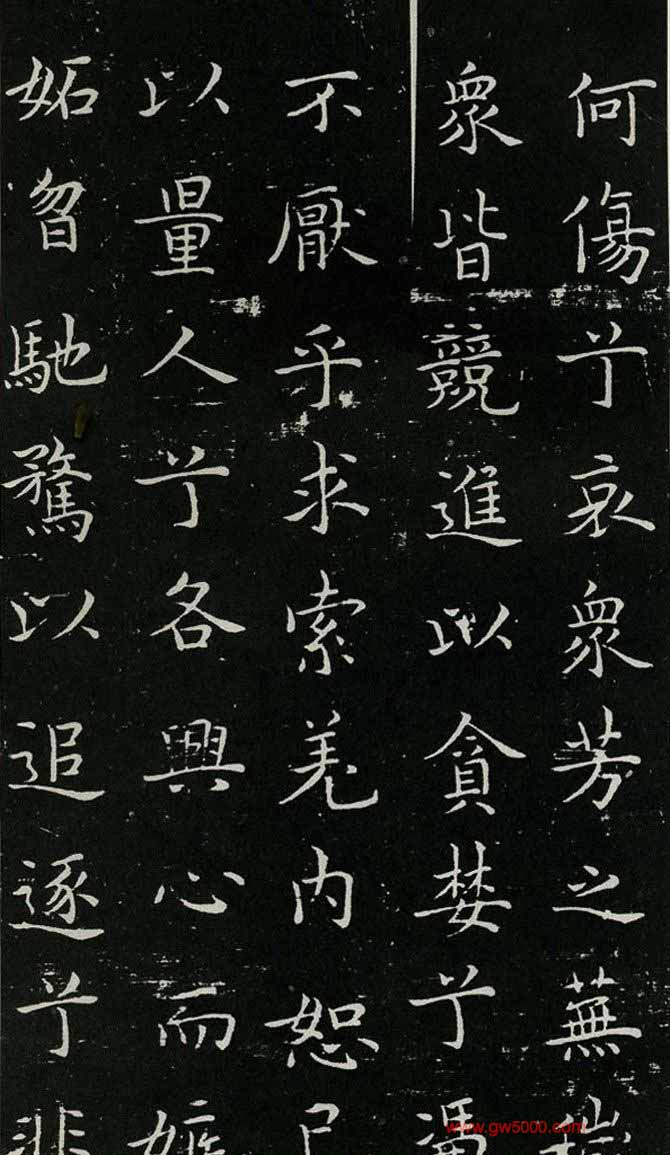 何傷兮哀衆芳之蕪
衆皆競進以貪婪兮
不厭乎求索羌内恕
以量人兮各興心而
妬曶馳騖以追逐兮非
www.gw5000.com